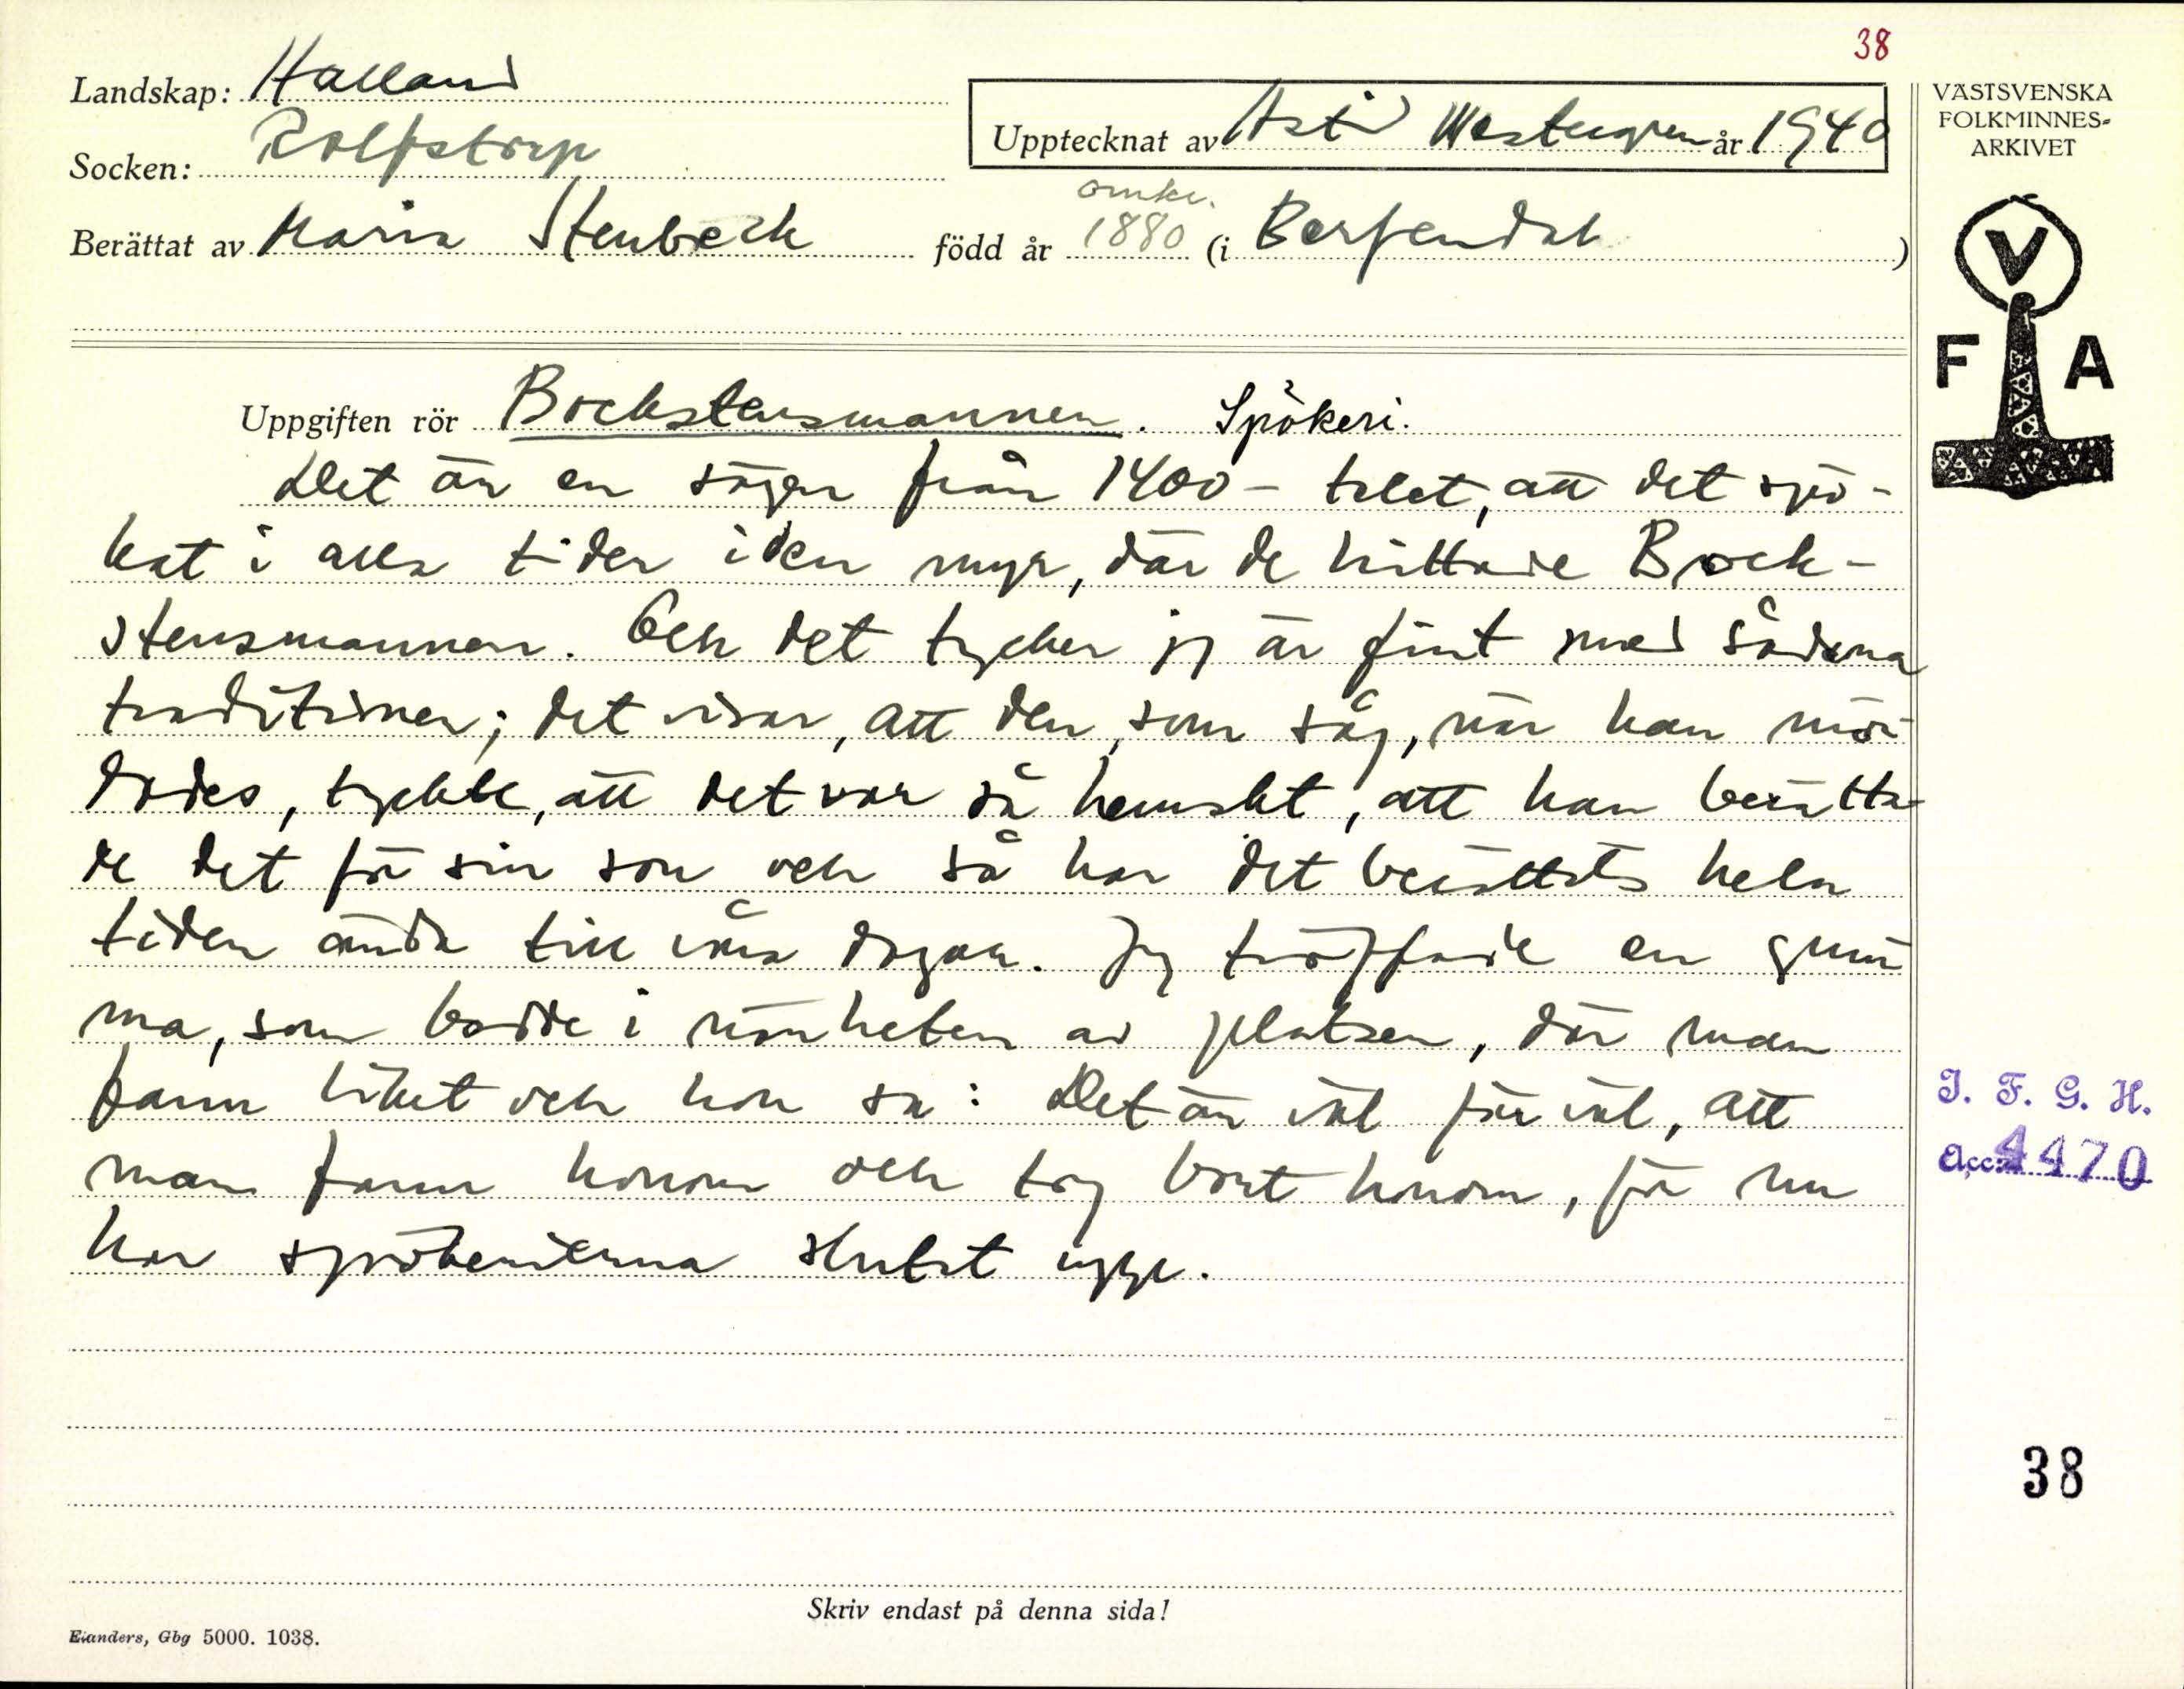 38
Landskap: Halland
Upptecknat av Astrid Westergren år 1940
Socken: Rolfstorp
Berättat av Maria Stenbeck född år omkr. 1880 (i Berfendal)
VÄSTSVENSKA
FOLKMINNES-
ARKIVET
V
F A
Uppgiften rör Bockstensmannen. Spökeri.
Det är en sägen från 1400-talet, att det spö-
kat i alla tider i den myr, där de hittade Bock-
stensmannen. Och det tycker jag är fint med sådana
traditioner; det visar, att den, som såg, när han mör-
dades, tyckte, att det var så hemskt, att han berätta-
de det för sin son och så har det berättats hela
tiden ända till våra dagar. Jag träffade en gum-
ma, som bodde i närheten av platsen, där man
fann liket och hon sa: Det är väl för väl, att
man fann honom och tog bort honom, för nu
har spökerierna slutat uppe.
I. F. G. H.
Acc. 4470
38
Skriv endast på denna sida!
Elanders, Gbg 5000. 1038.